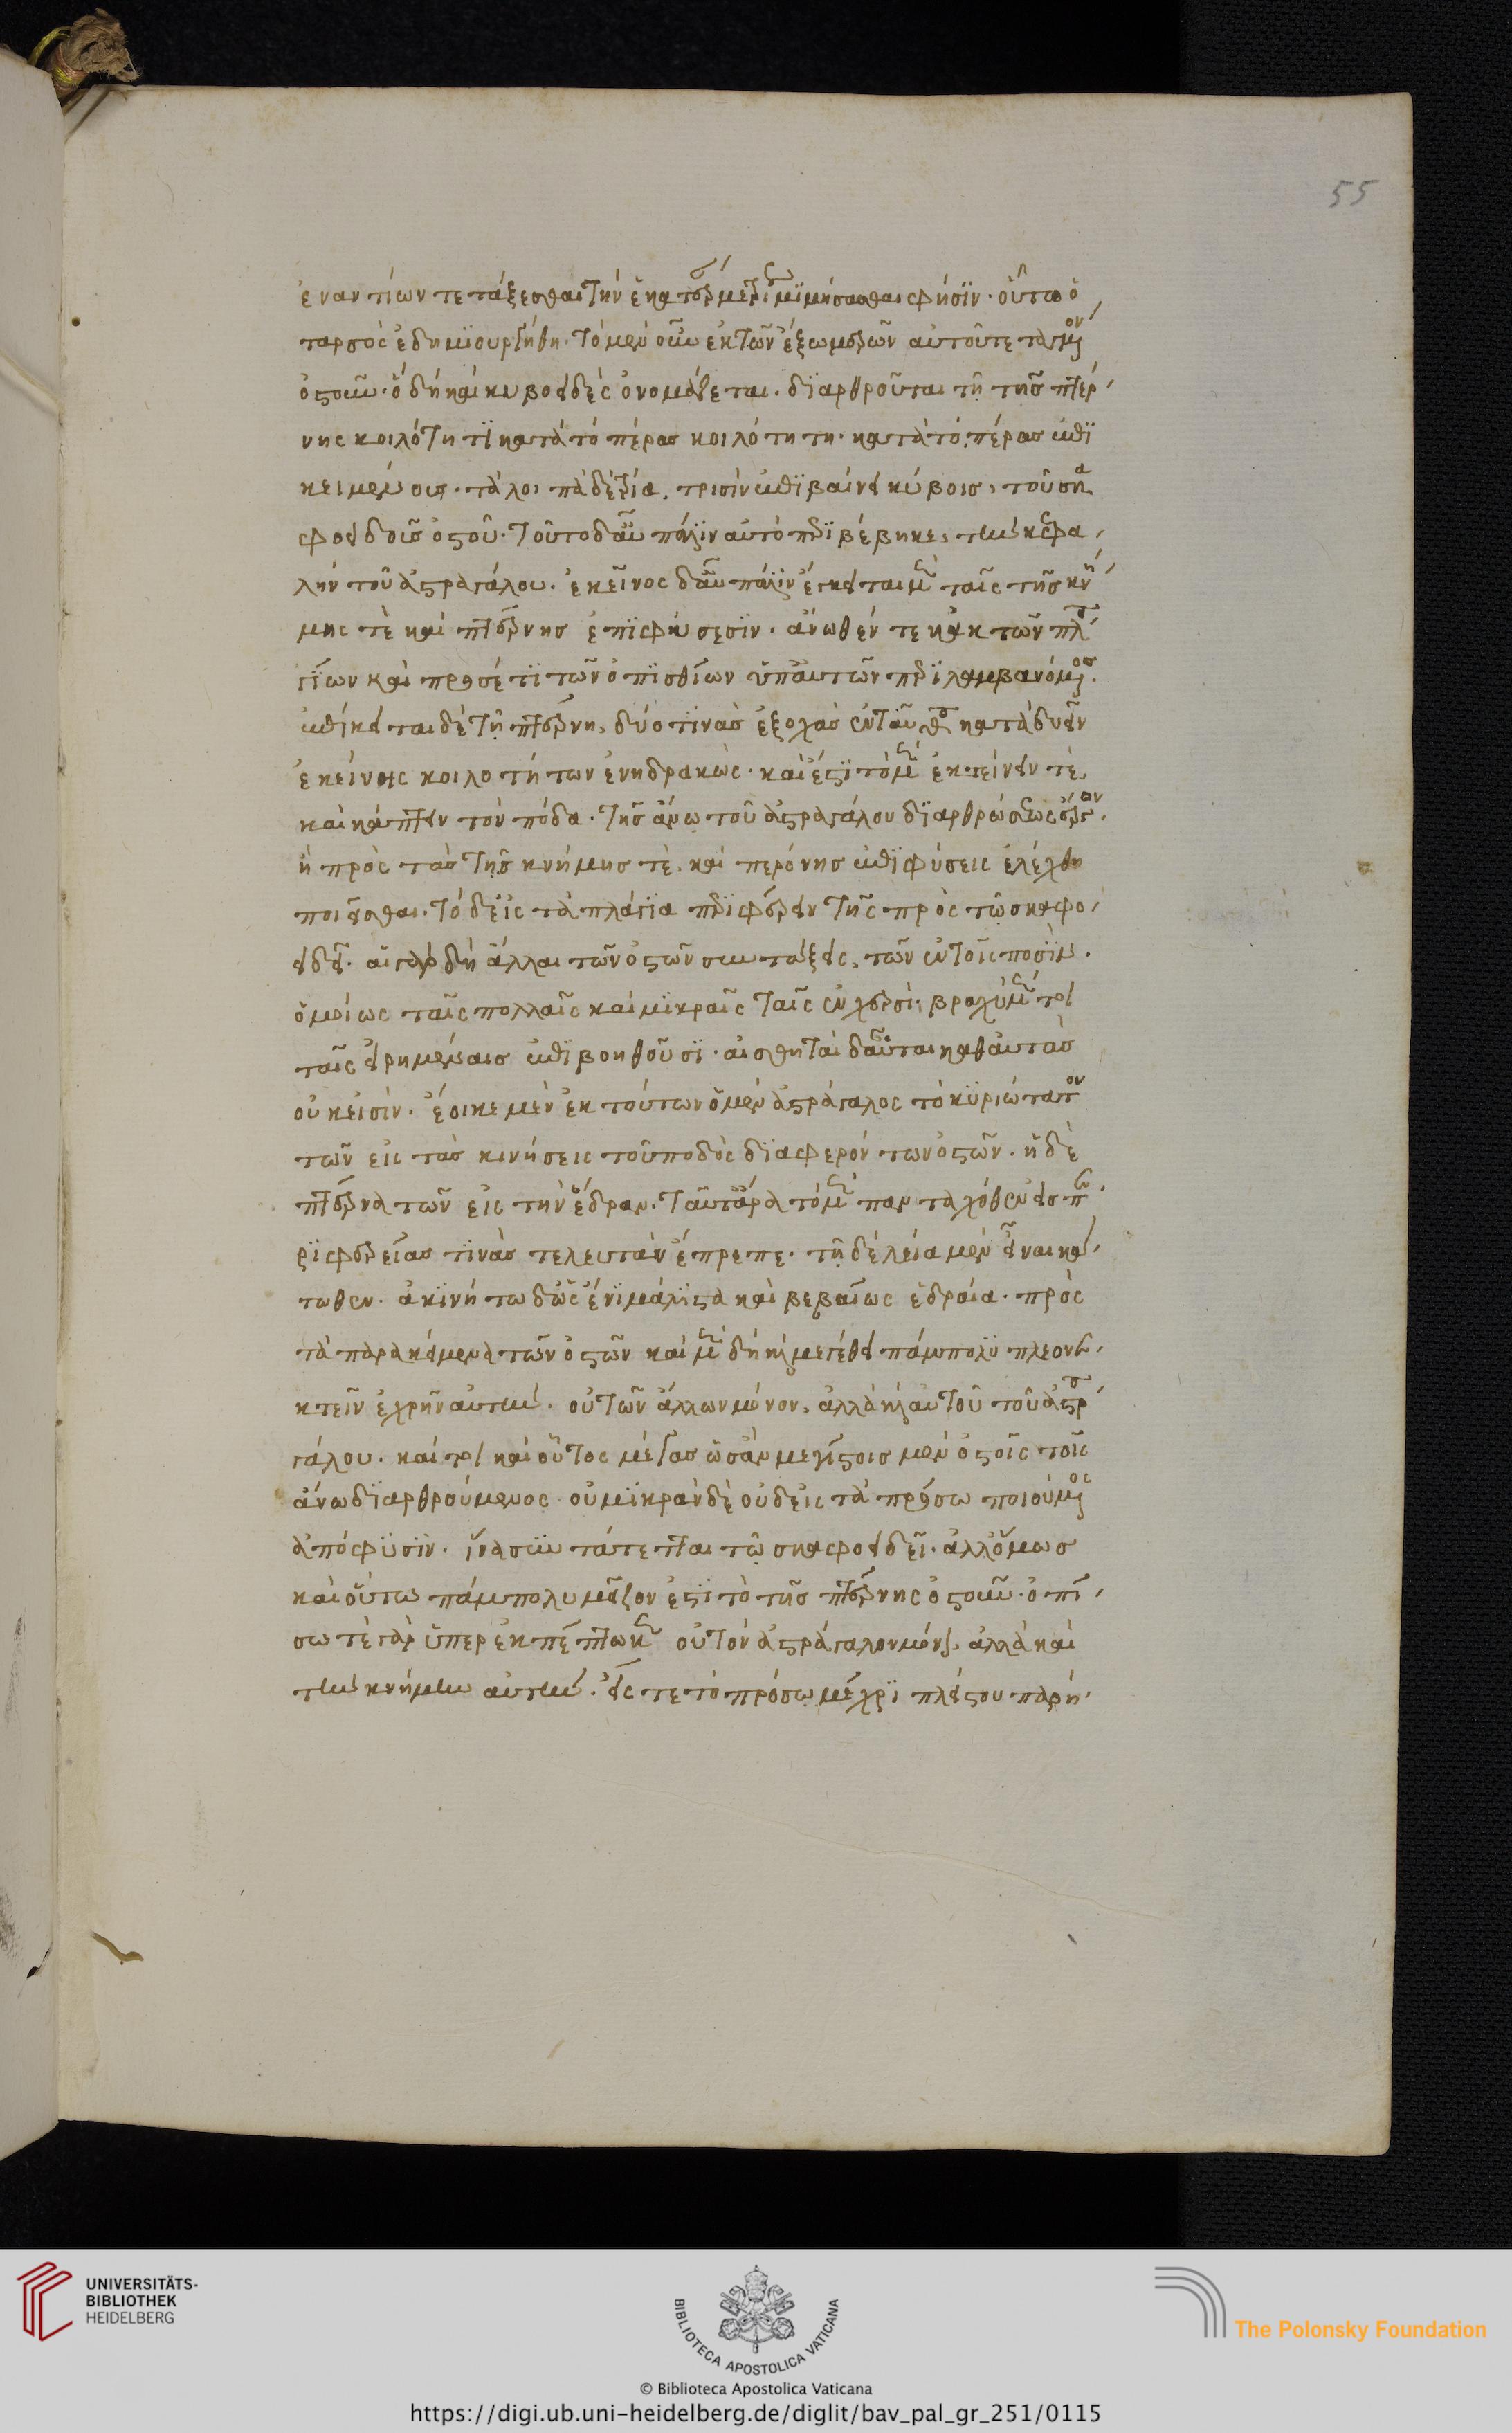 55
ἐναντίων τετάξεσθαι τὴν ἑκατέρωμερίμιμήσασθαι φήσϊν. οὕτω ὁ
ταρσὸς ἐδημϊουργήθη. τὸ μὲν οὖν ἐκ τῶν ἔξω μερῶν αὐτοῦ τεταγμένον
ὀστοῦν. ὃ δὴ καὶ κυβοειδὲς ὀνομάζεται. δϊαρθροῦται τῇ τῆς πτέρ
νης κοιλότητϊ κατὰ τὸ πέρας κοιλότητη. κατὰ τὸ πέρας ἐπϊ
κειμένοις. τὰ λοιπὰ δὲ τρία. τρισὶν ἐπϊβαίνει κύβοις, τοῦ σκα
φοειδοῦς ὀστοῦ. τοῦτο δ' αὖ πάλϊν αὐτὸ περϊβέβηκε, τὴν κεφα
λὴν τοῦ ἀστραγάλου. ἐκεῖνος δ' αὖ πάλϊν ἔγκειται μὲν ταῖς τῆς κνή
μης τὲ καὶ πτέρνης ἐπϊφύσεσϊν. ἄνωθέν τε κἀκ τῶν πλα
γΐων καὶ προσέτϊ τῶν ὀπϊσθΐων ὑπ' αὐτῶν περϊλαμβανόμενος.
ἐπίκειται δὲ τῇ πτέρνῃ, δύο τϊνὰς ἐξοχὰς ἐνταῦθα κατὰ δυεῖν
ἐκείνοις κοιλοτήτων ἐνηδρακὼς. καὶ ἔστϊ τὸ μὲν ἐκτείνειν τὲ
καὶ κάμπτειν τὸν πόδα. τῆς ἄνω τοῦ ἀστραγάλου δϊαρθρώσεως ἔργον.
ἣ πρὸς τὰς τῆς κνήμης τὲ, καὶ περόνης ἐπϊφύσεις ἐλέχθη
ποιεῖσθαι. τὸ δ' εἰς τὰ πλάγϊα περϊφέρειν τῆς πρὸς τῷ σκαφο
ειδεῖ. αἱ γὰρ δὴ ἄλλαι τῶν ὀστῶν συντάξεις, τῶν ἐν τοῖς ποσὶν.
ὁμοίως ταῖς πολλαῖς καὶ μϊκραῖς ταῖς ἐν χερσὶ, βραχὺ μέν τοι
ταῖς εἰρημέναις ἐπϊβοηθοῦσϊ. αἰσθηταὶ δ' αὗται καθ' αὑτὰς
οὐκ εἰσὶν. ἔοικε μὲν ἐκ τούτων ὁ μὲν ἀστράγαλος τὸ κϋριώτατον
τῶν εἰς τὰς κινήσεις τοῦ ποδὸς δϊαφερόντων ὀστῶν. ἡ δὲ
πτέρνα τῶν εἰς τὴν ἕδραν. ταῦτ' ἄρα τὸ μὲν πανταχόθεν εἰς πε
ρϊφερείας τϊνὰς τελευτᾶν ἔπρεπε. τῇ δὲ λεία μὲν εἶναι κά
τωθεν. ἀκϊνήτω δ' ὡς ἔνϊ μάλϊστα καὶ βεβαίως ἑδραία. πρὸς
τὰ παρακείμενα τῶν ὀστῶν καὶ μὲν δὴ καὶ μεγέθει πάμπολϋ πλεονε
κτεῖν ἐχρῆν αὐτὴν. οὐ τῶν ἄλλων μόνον, ἀλλὰ καὶ αὐτοῦ τοῦ ἀστρα
γάλου. καί τοι καὶ οὗτος μέγας ὡς ἂν μεγίστοις μὲν ὀστοῖς τοῖς
ἄνω δϊαρθρούμενος. οὐ μϊκρὰν δὲ οὐδ' εἰς τὰ πρόσω ποιούμενος
ἀπόφϋσϊν. ἵνα συντάτεται τῷ σκαφοειδεῖ. ἀλλ' ὅμως
καὶ οὕτω πάμπολυ μεῖζον ἐστϊ τὸ τῆς πτέρνης ὀστοῦν. ὀπί
σω τὲ γὰρ ὑπερεκπέπτωκεν οὐ τὸν ἀστράγαλον μόνον, ἀλλὰ καὶ
τὴν κνήμην αὐτὴν. εἴς τε τὸ πρόσω μέχρϊ πλείστου παρή
UNIVERSITÄTS-
BIBLIOTHEK
HEIDELBERG
BIBLIOTECA APOSTOLICA VATICANA
© Biblioteca Apostolica Vaticana
The Polonsky Foundation
https://digi.ub.uni-heidelberg.de/diglit/bav_pal_gr_251/0115